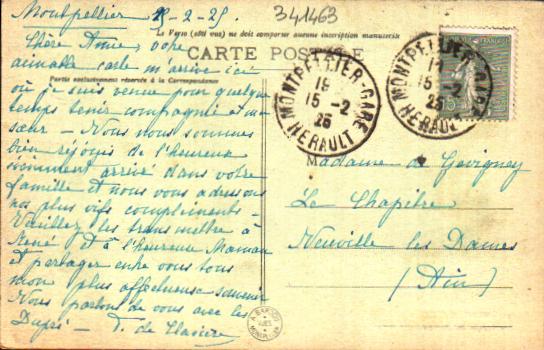 Montpellier 15-2-25
341463
Le Verso (côté vue) ne doit comporter aucune inscription manuscrite
CARTE POSTALE
Partie exclusivement réservée à la Correspondance
Chère Amie, votre
aimable carte m'arrive ici
où je suis venue pour quelque
temps tenir compagnie à ma
sœur - Nous nous sommes
bien réjouis de l'heureux
événement arrivé dans votre
famille et nous vous adressons
nos plus vifs compliments -
Veuillez les transmettre à
René et à l'heureuse Maman
et partager entre vous tous
mon plus affectueux souvenir
Nous parlons de vous avec les
Dupré - T. de
MONTPELLIER-GARE
19
15-2
25
HERAULT
MONTPELLIER-GARE
15-2
25
HERAULT
15
M
Madame de Gevigney
Le Chapitre
Neuville les Dames
(Ain)